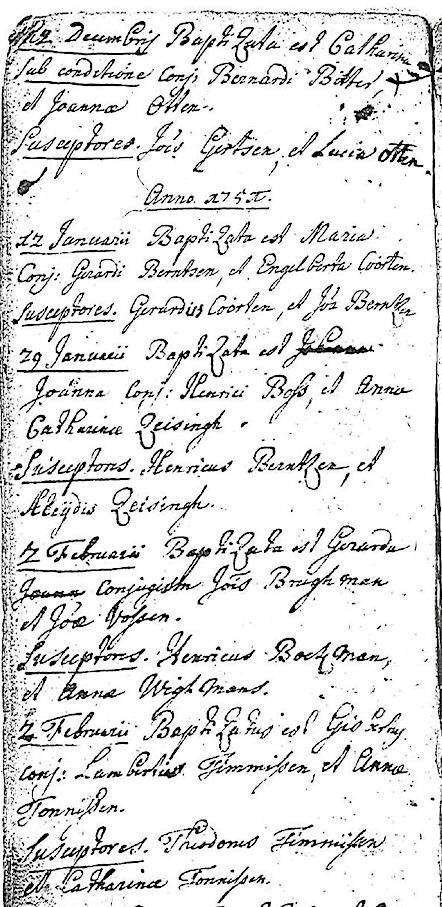 Decembris Baptizata est Catharina
sub conditione Conj: Bernardi Botter,
et Joannæ Otten.
Susceptores. Jois Gertsen, et Lucia Otten.
Anno 1751.
12 Januarii Baptizata est Maria
Conj: Gerardi Berntsen, et Engelberta Coorten.
Susceptores. Gerardus Coorten, et Joa Berntzen
29 Januarii Baptizata est Johanna
Joanna Conj: Henrici Boss, et Anna
Catharinæ Zeisingh.
Susceptores. Henricus Berntzen, et
Aleijdis Zeisingh.
2 Februarii Baptizata est Gerarda
Joanna Conjugum Jois Brughman
et Joæ Vossen.
Susceptores. Henricus Boekman,
et Anna Wighmans.
2 Februarii Baptizatus est
Conj: Lamberti Timmissen, et Annæ
Tonnissen.
Susceptores. Theodorus Timmissen
et Catharina Tonnissen.